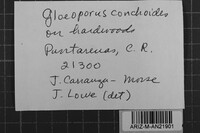 Gloeoporus conchoides
on hardwoods
Puntarenas, C. R.
21300
J. Carranza-Morse
J. Lowe (det)
ARIZ-M-AN21901